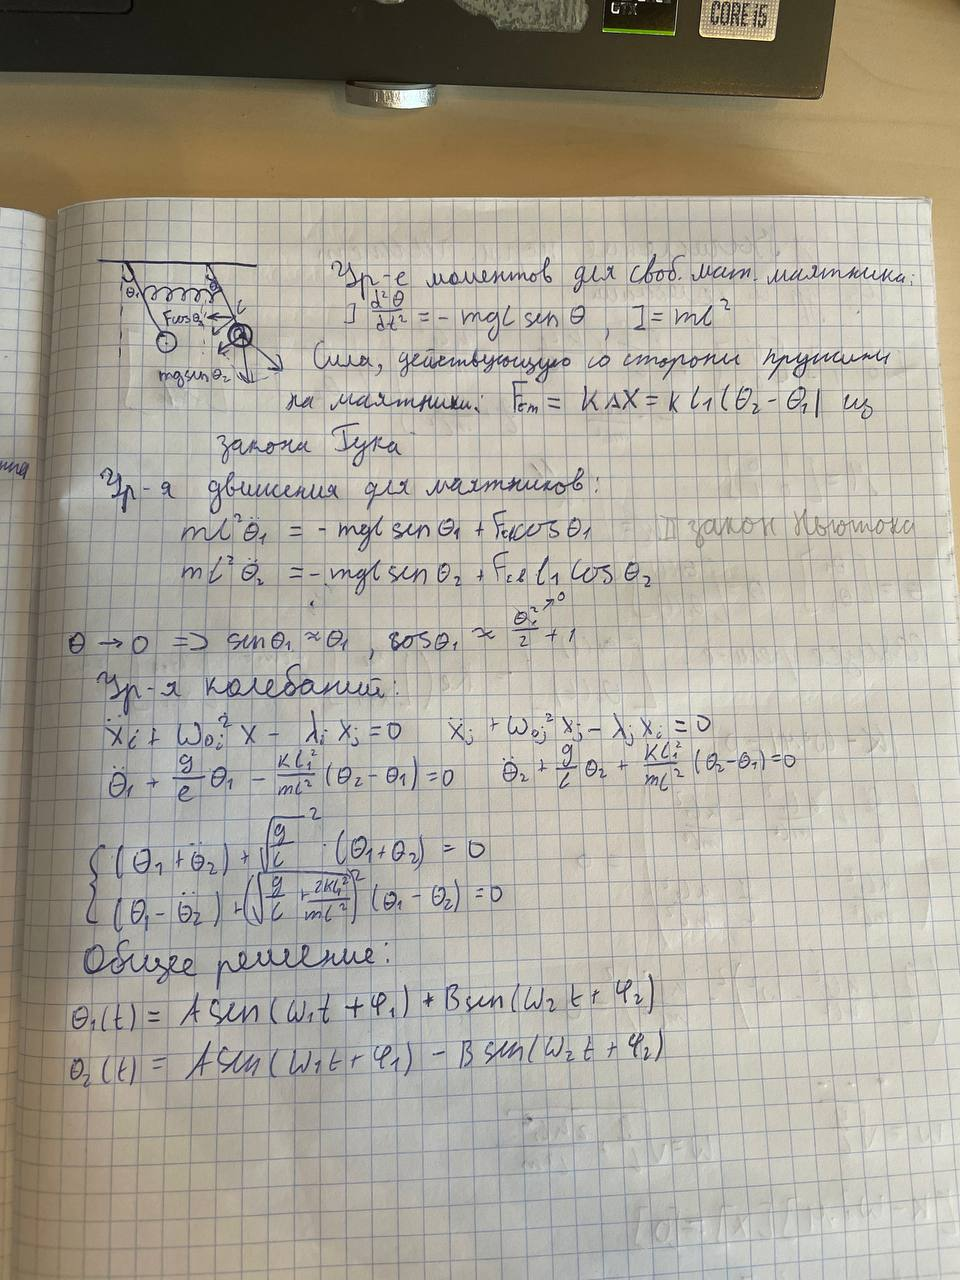 CORE i5
Ур-е моментов для своб. мат. маятника:
I d²θ/dt² = - mgl sin θ , I = ml²
Сила, действующую со стороны пружины
на маятники: F = KΔX = k l₁(θ₂ - θ₁) из
закона Гука
θ₁
l
F cosθ₂
mg sin θ₂
Ур-я движения для маятников:
ml²θ̈₁ = - mgl sin θ₁ + F cos θ₁
II закон Ньютона
ml²θ̈₂ = - mgl sin θ₂ + F l₁ cos θ₂
θ → 0 => sin θ₁ ≈ θ₁ , cos θ₁ ≈ θ₁²/2 →0 + 1
Ур-я колебаний:
ẍᵢ + ω₀ᵢ² x - λᵢ xⱼ = 0 ẍⱼ + ω₀ⱼ² xⱼ - λⱼ xᵢ = 0
θ̈₁ + g/l θ₁ - kl₁²/ml² (θ₂ - θ₁) = 0 θ̈₂ + g/l θ₂ + kl₁²/ml² (θ₂ - θ₁) = 0
{ (θ̈₁ + θ̈₂) + √(g/l)² · (θ₁ + θ₂) = 0
(θ̈₁ - θ̈₂) + (√(g/l + 2kl₁²/ml²))² (θ₁ - θ₂) = 0
Общее решение:
θ₁(t) = A sin(ω₁t + φ₁) + B sin(ω₂t + φ₂)
θ₂(t) = A sin(ω₁t + φ₁) - B sin(ω₂t + φ₂)